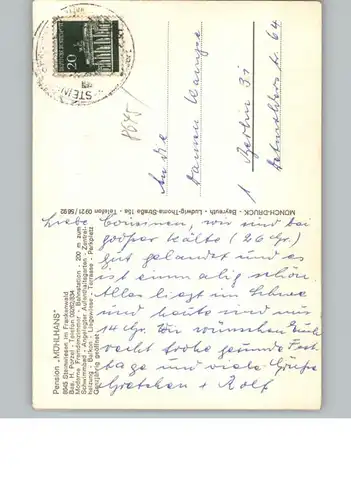 Pension „MÜHLHANS"
8645 Steinwiesen im Frankenwald
Bes. H. Porzel - Telefon 09262/834
Moderne Fremdenzimmer - Bahnstation - 200 m zum
Schwimmbad - Angelsport - Aufenthaltsgarten - Zentral-
heizung - Balkon - Liegewiese - Terrasse - Parkplatz
Ganzjährig geöffnet
MÜNCH-DRUCK · Bayreuth · Ludwig-Thoma-Straße 15a · Telefon 09 21 / 56 92
20
DEUTSCHE BUNDESPOST
STEIN
An die
Damen
1 Berlin 31
64
Liebe wir sind bei
großer Kälte (26 Gr.)
gut gelandet und es
ist einmalig schön.
Alles liegt im Schnee
und heute sind nur
14 Gr. Wir wünschen Euch
recht frohe gesunde Fest
tage und viele Grüße
Gretchen + Rolf